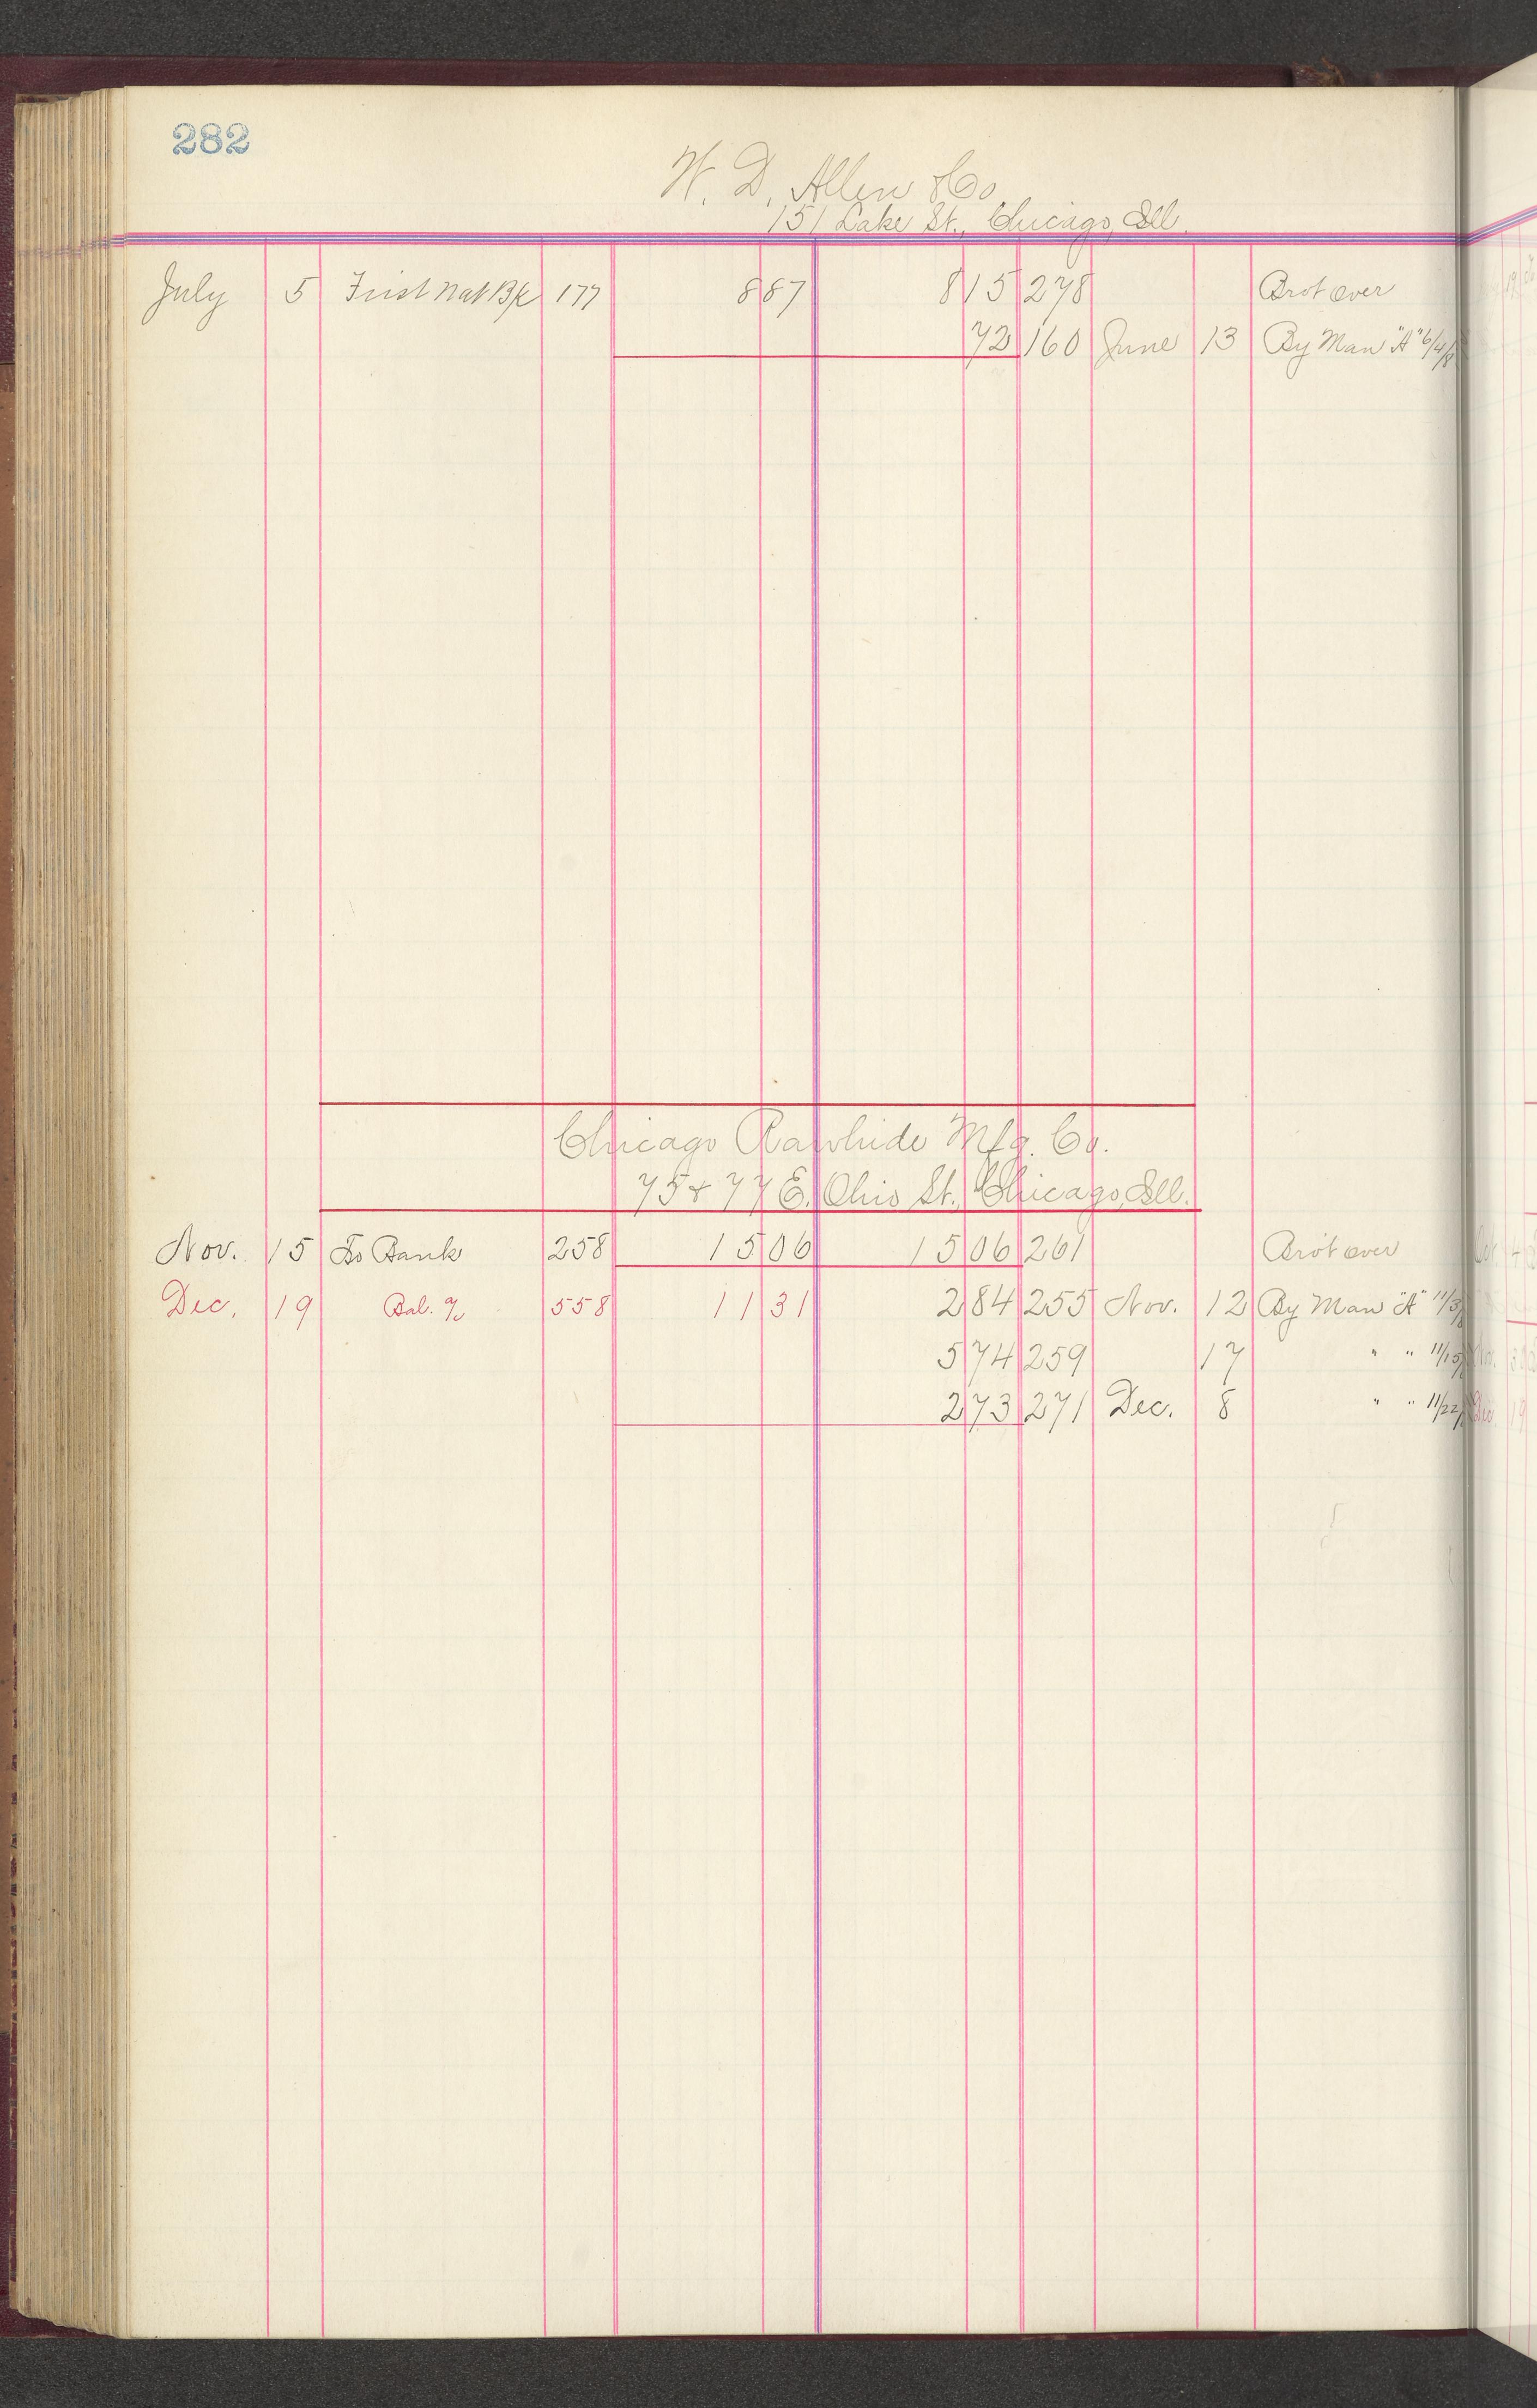 282
W. D. Allen & Co
151 Lake St., Chicago, Ill.
July 5 First Nat Bk 177 8 87 8 15 278 Brot over
72 160 June 13 By Man "A" 6/4/8
Chicago Rawhide Mfg. Co.
75 & 77 E. Ohio St., Chicago, Ill.
Nov. 15 To Bank 258 15 06 15 06 261 Brot over
Dec. 19 Bal. % 558 11 31 2 84 255 Nov. 12 By Man "A" 11/3/
5 74 259 17 " " 11/15/
2 73 271 Dec. 8 " " 11/22/